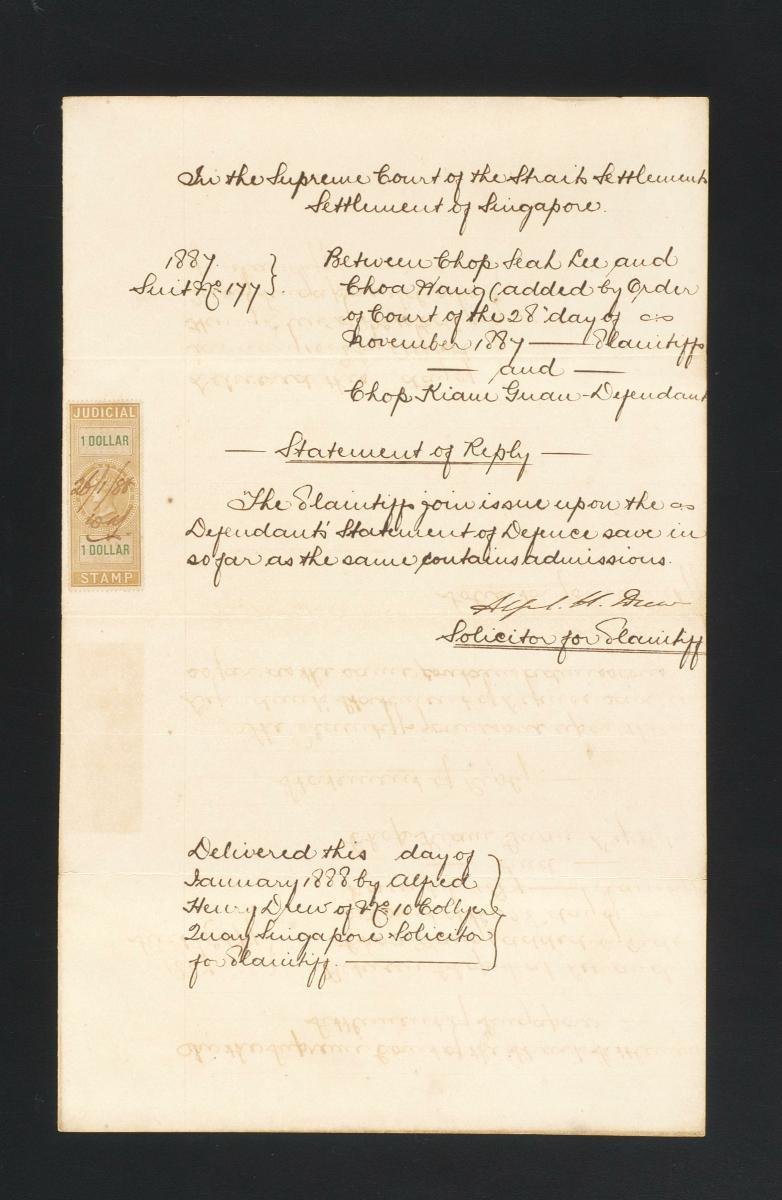 In the Supreme Court of the Straits Settlements
Settlement of Singapore.
1887.
Suit No. 177
Between Chop Seah Lee and
Choa Hang (added by Order
of Court of the 28th day of
November 1887 — Plaintiffs
— and —
Chop Kiam Guan - Defendant
— Statement of Reply —
JUDICIAL
1 DOLLAR
26/1/88
1 DOLLAR
STAMP
The Plaintiffs join issue upon the
Defendants' Statement of Defence save in
so far as the same contains admissions.
Alf. H. Drew
Solicitor for Plaintiff
Delivered this day of
January 1888 by Alfred
Henry Drew of No. 10 Collyer
Quay Singapore Solicitor
for Plaintiff. —